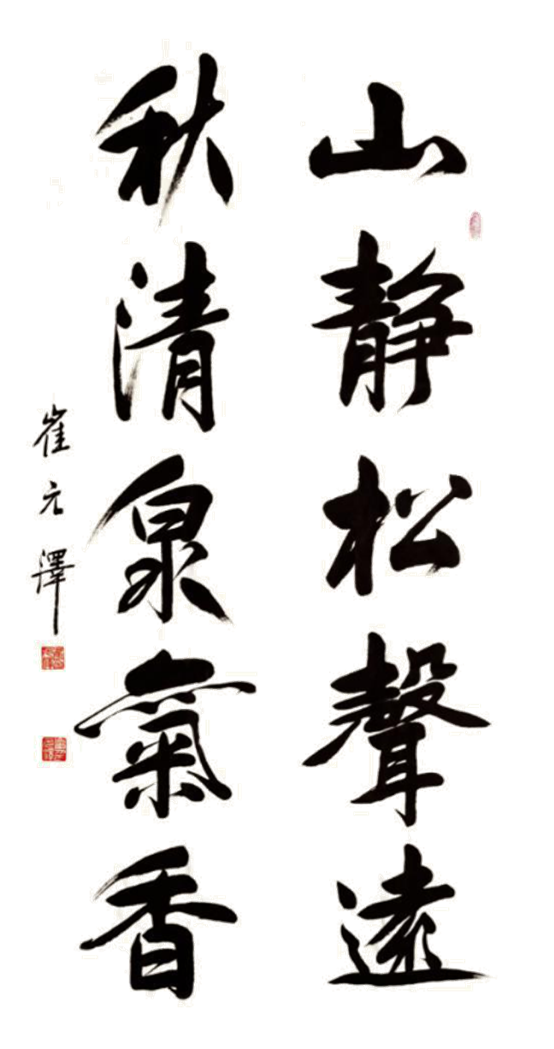 山静松聲遠
秋清泉氣香
崔元澤